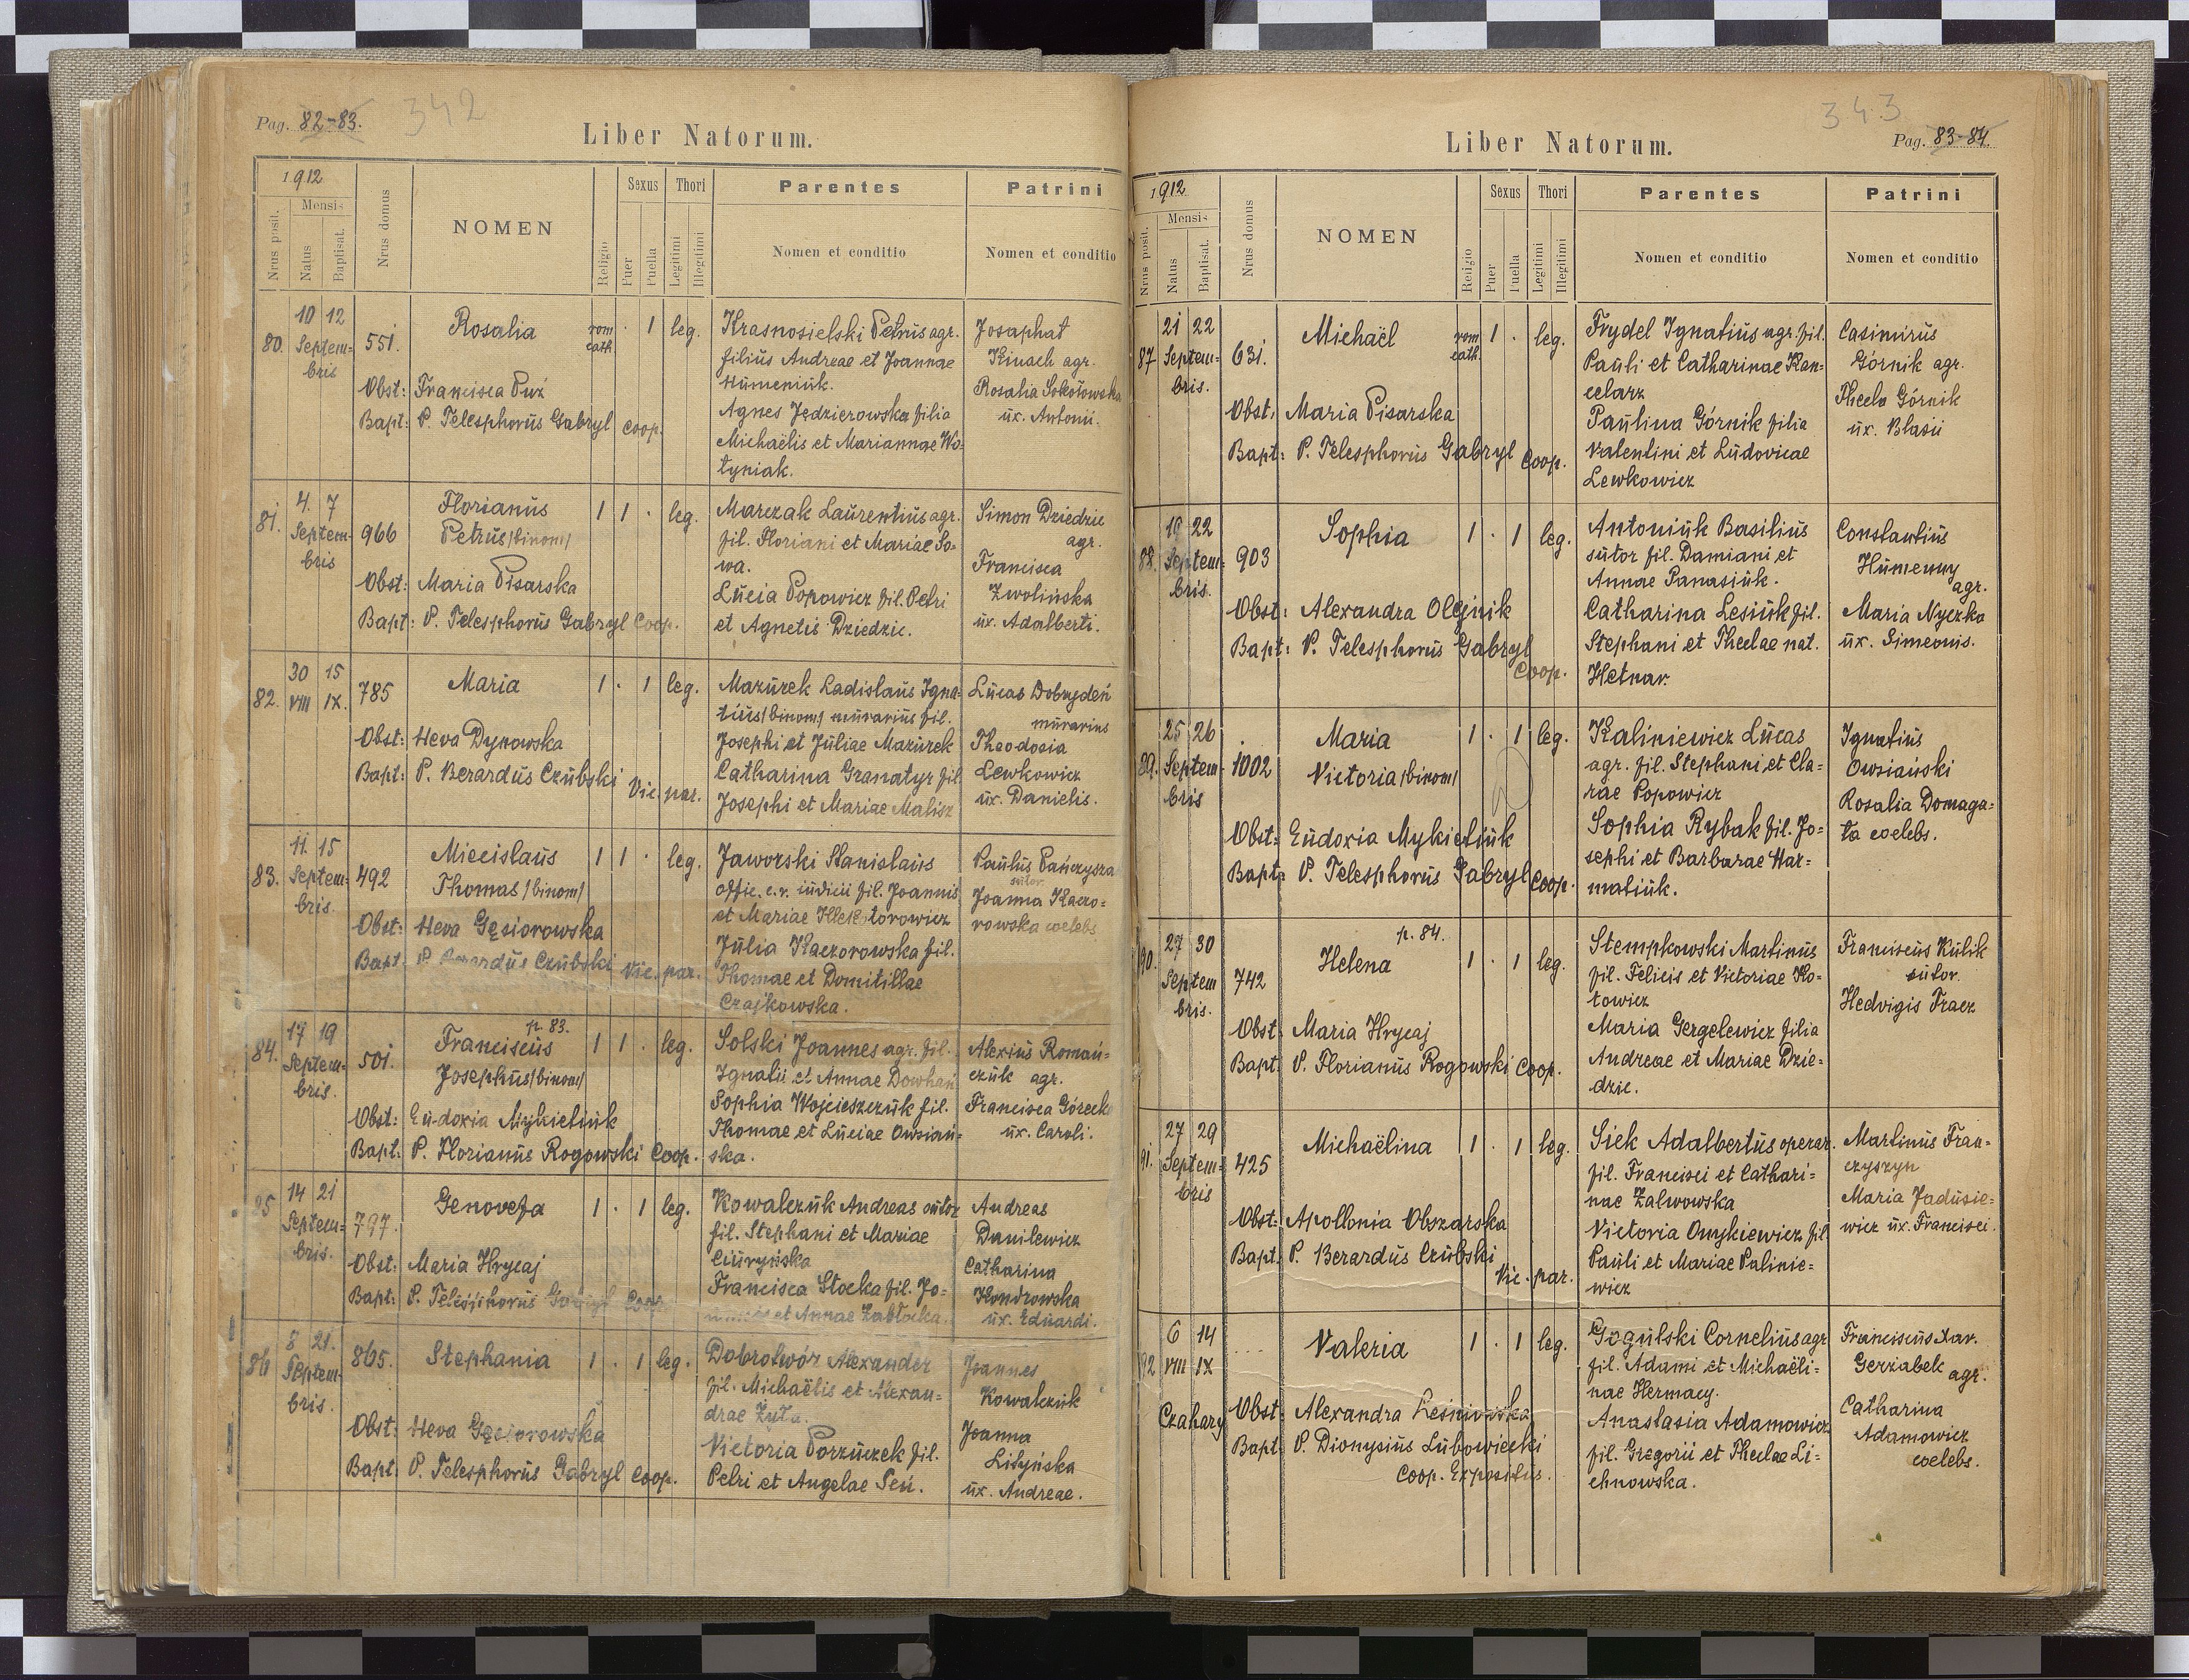 Pag. 82-83. 342
Liber Natorum.
1912
Nrus posit.
Mensis
Natus
Baptisat.
Nrus domus
NOMEN
Religio
Sexus
Puer
Puella
Thori
Legitimi
Illegitimi
Parentes
Nomen et conditio
Patrini
Nomen et conditio
80.
10 12
Septem-
bris
551.
Rosalia
rom
cath.
. 1 leg.
Obst: Francisca Puź
Bapt: P. Telesphorus Gabryl coop.
Krasnosielski Petrus agr.
filius Andreae et Joannae
Humeniuk.
Agnes Jędzierowska filia
Michaëlis et Mariannae Wo-
tyniak.
Josaphat
Kinach agr.
Rosalia Sokołowska
ux. Antonii.
81.
4. 7
Septem-
bris
966
Florianus
Petrus /binom/
1 1 . leg.
Obst: Maria Pisarska
Bapt: P. Telesphorus Gabryl Coop.
Marczak Laurentius agr.
fil. Floriani et Mariae So-
wa.
Lucia Popowicz fil. Petri
et Agnetis Dziedzic.
Simon Dziedzic
agr.
Francisca
Zwolińska
ux. Adalberti.
82.
30 15
VIII IX.
785
Maria
1 . 1 leg.
Obst: Heva Dynowska
Bapt: P. Berardus Czubski Vic. par.
Mazurek Ladislaus Igna-
tius /binom/ murarius fil.
Josephi et Juliae Mazurek
Catharina Granatyr fil.
Josephi et Mariae Malisz
Lucas Dobrydeń
murarius
Theodosia
Lewkowicz
ux. Danielis.
83.
11. 15
Septem-
bris.
492
Miecislaus
Thomas /binom/
1 1 . leg.
Obst: Heva Gęsiorowska
Bapt: P. Berardus Czubski Vic. par.
Jaworski Stanislaus
offic. c.r. iudicii fil. Joannis
et Mariae Hektorowicz
Julia Kaczorowska fil.
Thomae et Domitillae
Czajkowska.
Paulus Pańczysza
sutor
Joanna Kaczo-
rowska coelebs
84.
17 19
Septem-
bris.
501.
p. 83.
Franciscus
Josephus /binom/
1 1 . leg.
Obst: Eudoxia Mykietiuk
Bapt: P. Florianus Rogowski Coop.
Solski Joannes agr. fil.
Ignatii et Annae Dowhań
Sophia Wojcieszczuk fil.
Thomae et Luciae Owsiań-
ska.
Alexius Romań-
czuk agr.
Francisca Górecka
ux. Caroli.
85
14 21
Septem-
bris.
797.
Genovefa
1 . 1 leg.
Obst: Maria Hrycaj
Bapt: P. Telesphorus Gabryl Coop.
Kowalczuk Andreas sutor
fil. Stephani et Mariae
Ciuryńska
Francisca Stocka fil. Jo-
annis et Annae Zabłocka.
Andreas
Danilewicz
Catharina
Kondrowska
ux. Eduardi.
86
8 21.
Septem-
bris.
865.
Stephania
1 . 1 leg.
Obst: Heva Gęsiorowska
Bapt: P. Telesphorus Gabryl Coop.
Dobrotwór Alexander
fil. Michaëlis et Alexan-
drae Żyta.
Victoria Porzuczek fil.
Petri et Angelae Seń.
Joannes
Kowalczuk
Joanna
Lityńska
ux. Andreae.
343 Pag. 83-84.
Liber Natorum.
1912
Nrus posit.
Mensis
Natus
Baptisat.
Nrus domus
NOMEN
Religio
Sexus
Puer
Puella
Thori
Legitimi
Illegitimi
Parentes
Nomen et conditio
Patrini
Nomen et conditio
87
21 22
Septem-
bris.
631.
Michaël
rom
cath.
1 . leg.
Obst. Maria Pisarska
Bapt: P. Telesphorus Gabryl Coop.
Frydel Ignatius agr. fil.
Pauli et Catharinae Kan-
celarz
Paulina Górnik filia
Valentini et Ludovicae
Lewkowicz
Casimirus
Górnik agr.
Thecla Górnik
ux. Blasii
88.
19 22
Septem-
bris.
903
Sophia
1 . 1 leg.
Obst: Alexandra Olejnik
Bapt: P. Telesphorus Gabryl
Coop.
Antoniuk Basilius
sutor fil. Damiani et
Annae Panasiuk.
Catharina Lesiuk fil.
Stephani et Theclae nat.
Hetnar.
Constantius
Humenny
agr.
Maria Nyczka
ux. Simeonis.
89.
25 26
Septem-
bris
1002
Maria
Victoria /binom/
1 . 1 leg.
Obst: Eudoxia Mykietiuk
Bapt: P. Telesphorus Gabryl Coop.
Kaliniewicz Lucas
agr. fil. Stephani et Cla-
rae Popowicz
Sophia Rybak fil. Jo-
sephi et Barbarae Har-
matiuk.
Ignatius
Owsiański
Rosalia Domaga-
ła coelebs.
90.
27 30
Septem
bris.
742
p. 84.
Helena
1 . 1 leg.
Obst: Maria Hrycaj
Bapt: P. Florianus Rogowski Coop.
Stempkowski Martinus
fil. Felicis et Victoriae Ko-
towicz
Maria Gergelewicz filia
Andreae et Mariae Dzie-
dzic.
Franciscus Kulik
sutor.
Hedvigis Tracz
91.
27 29
Septem-
bris
425
Michaëlina
1 . 1 leg.
Obst: Apollonia Obszarska
Bapt: P. Berardus Czubski
Vic. par.
Siek Adalbertus operar.
fil. Francisci et Cathari-
nae Zalwowska
Victoria Onykiewicz fil.
Pauli et Mariae Palinie-
wicz
Martinus Fran-
czyszyn
Maria Jadusie-
wicz ux. Francisci.
92
6 14
VIII IX
Czahary
....
Valeria
1 . 1 leg.
Obst: Alexandra Leśniowska
Bapt: P. Dionysius Lubowiecki
Coop. Expositus.
Gogulski Cornelius agr
fil. Adami et Michaëli-
nae Hermacy.
Anastasia Adamowicz
fil. Gregorii et Theclae Li-
chnowska.
Franciscus Xav.
Gerżabek agr.
Catharina
Adamowicz
coelebs.